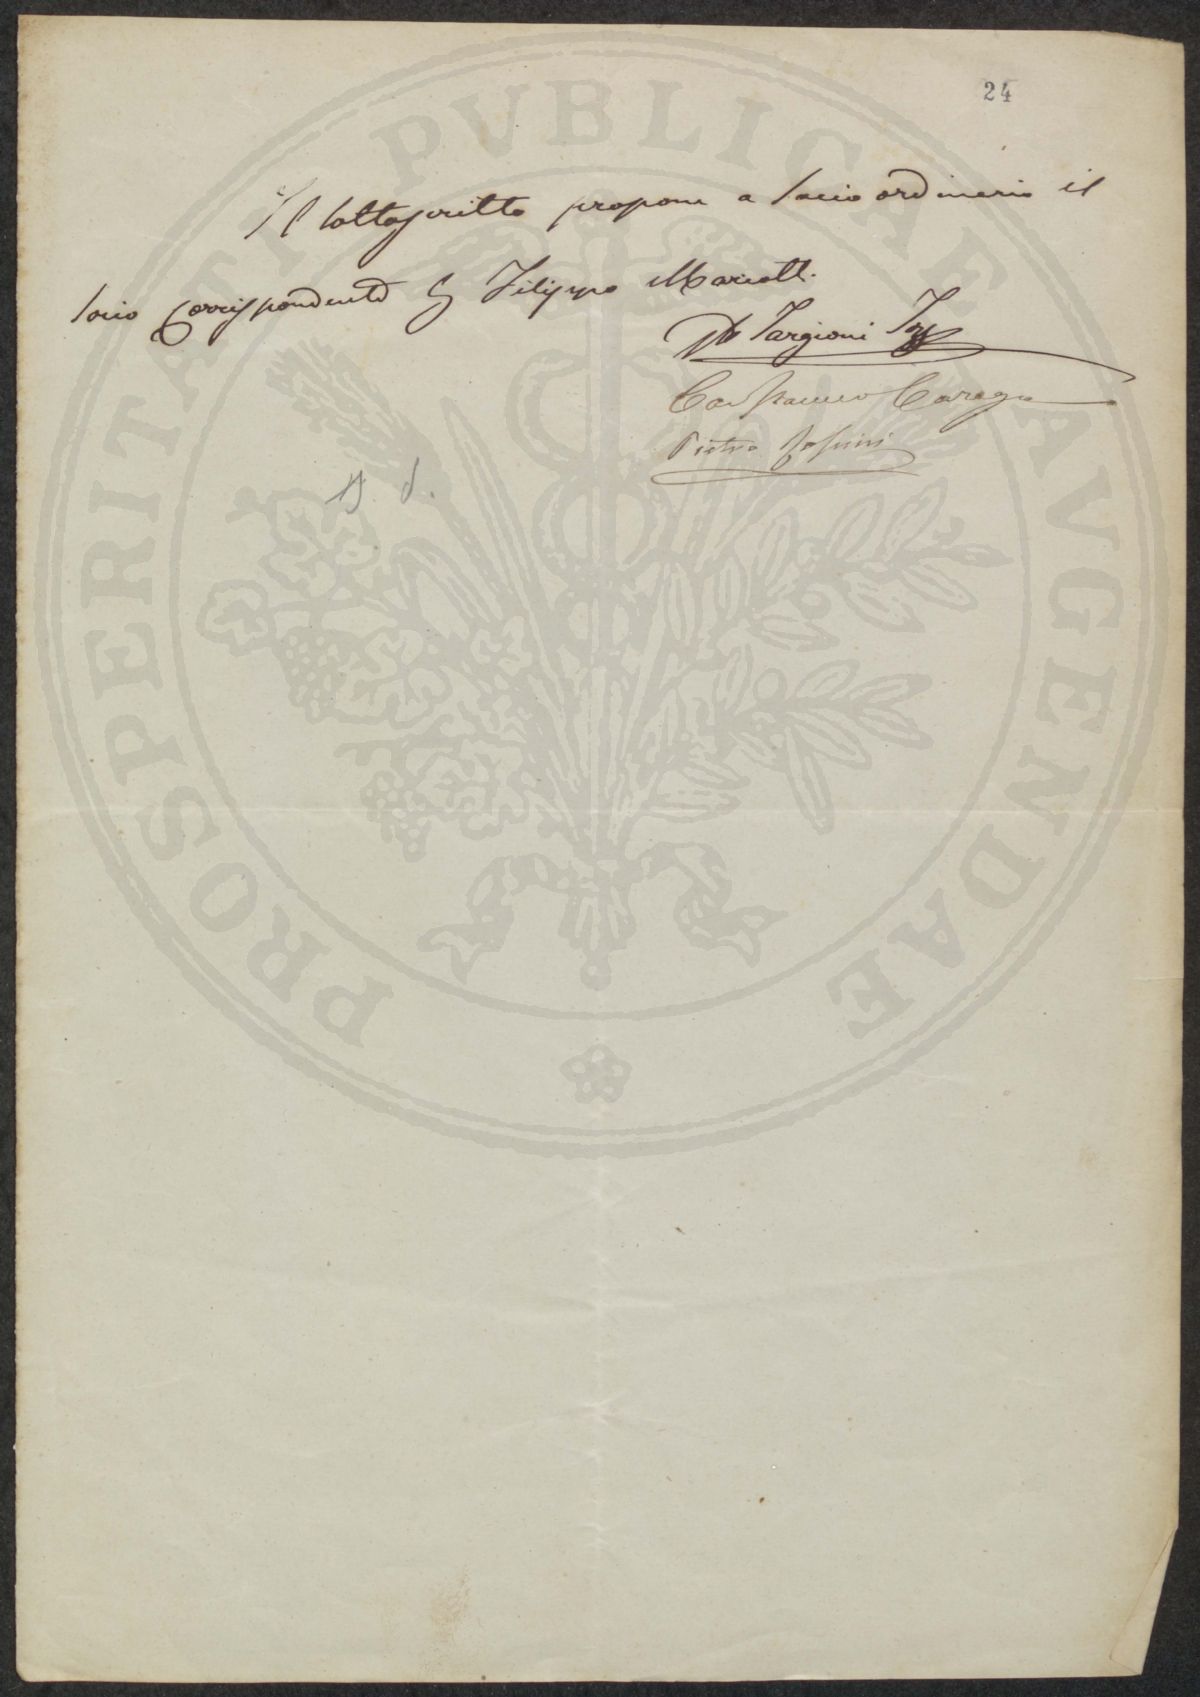 24
Il sottoscritto propone a socio ordinario il
socio corrispondente Filippo Mariotti.
Targioni
Carega
Pietro
PROSPERITATI PVBLICAE AVGENDAE